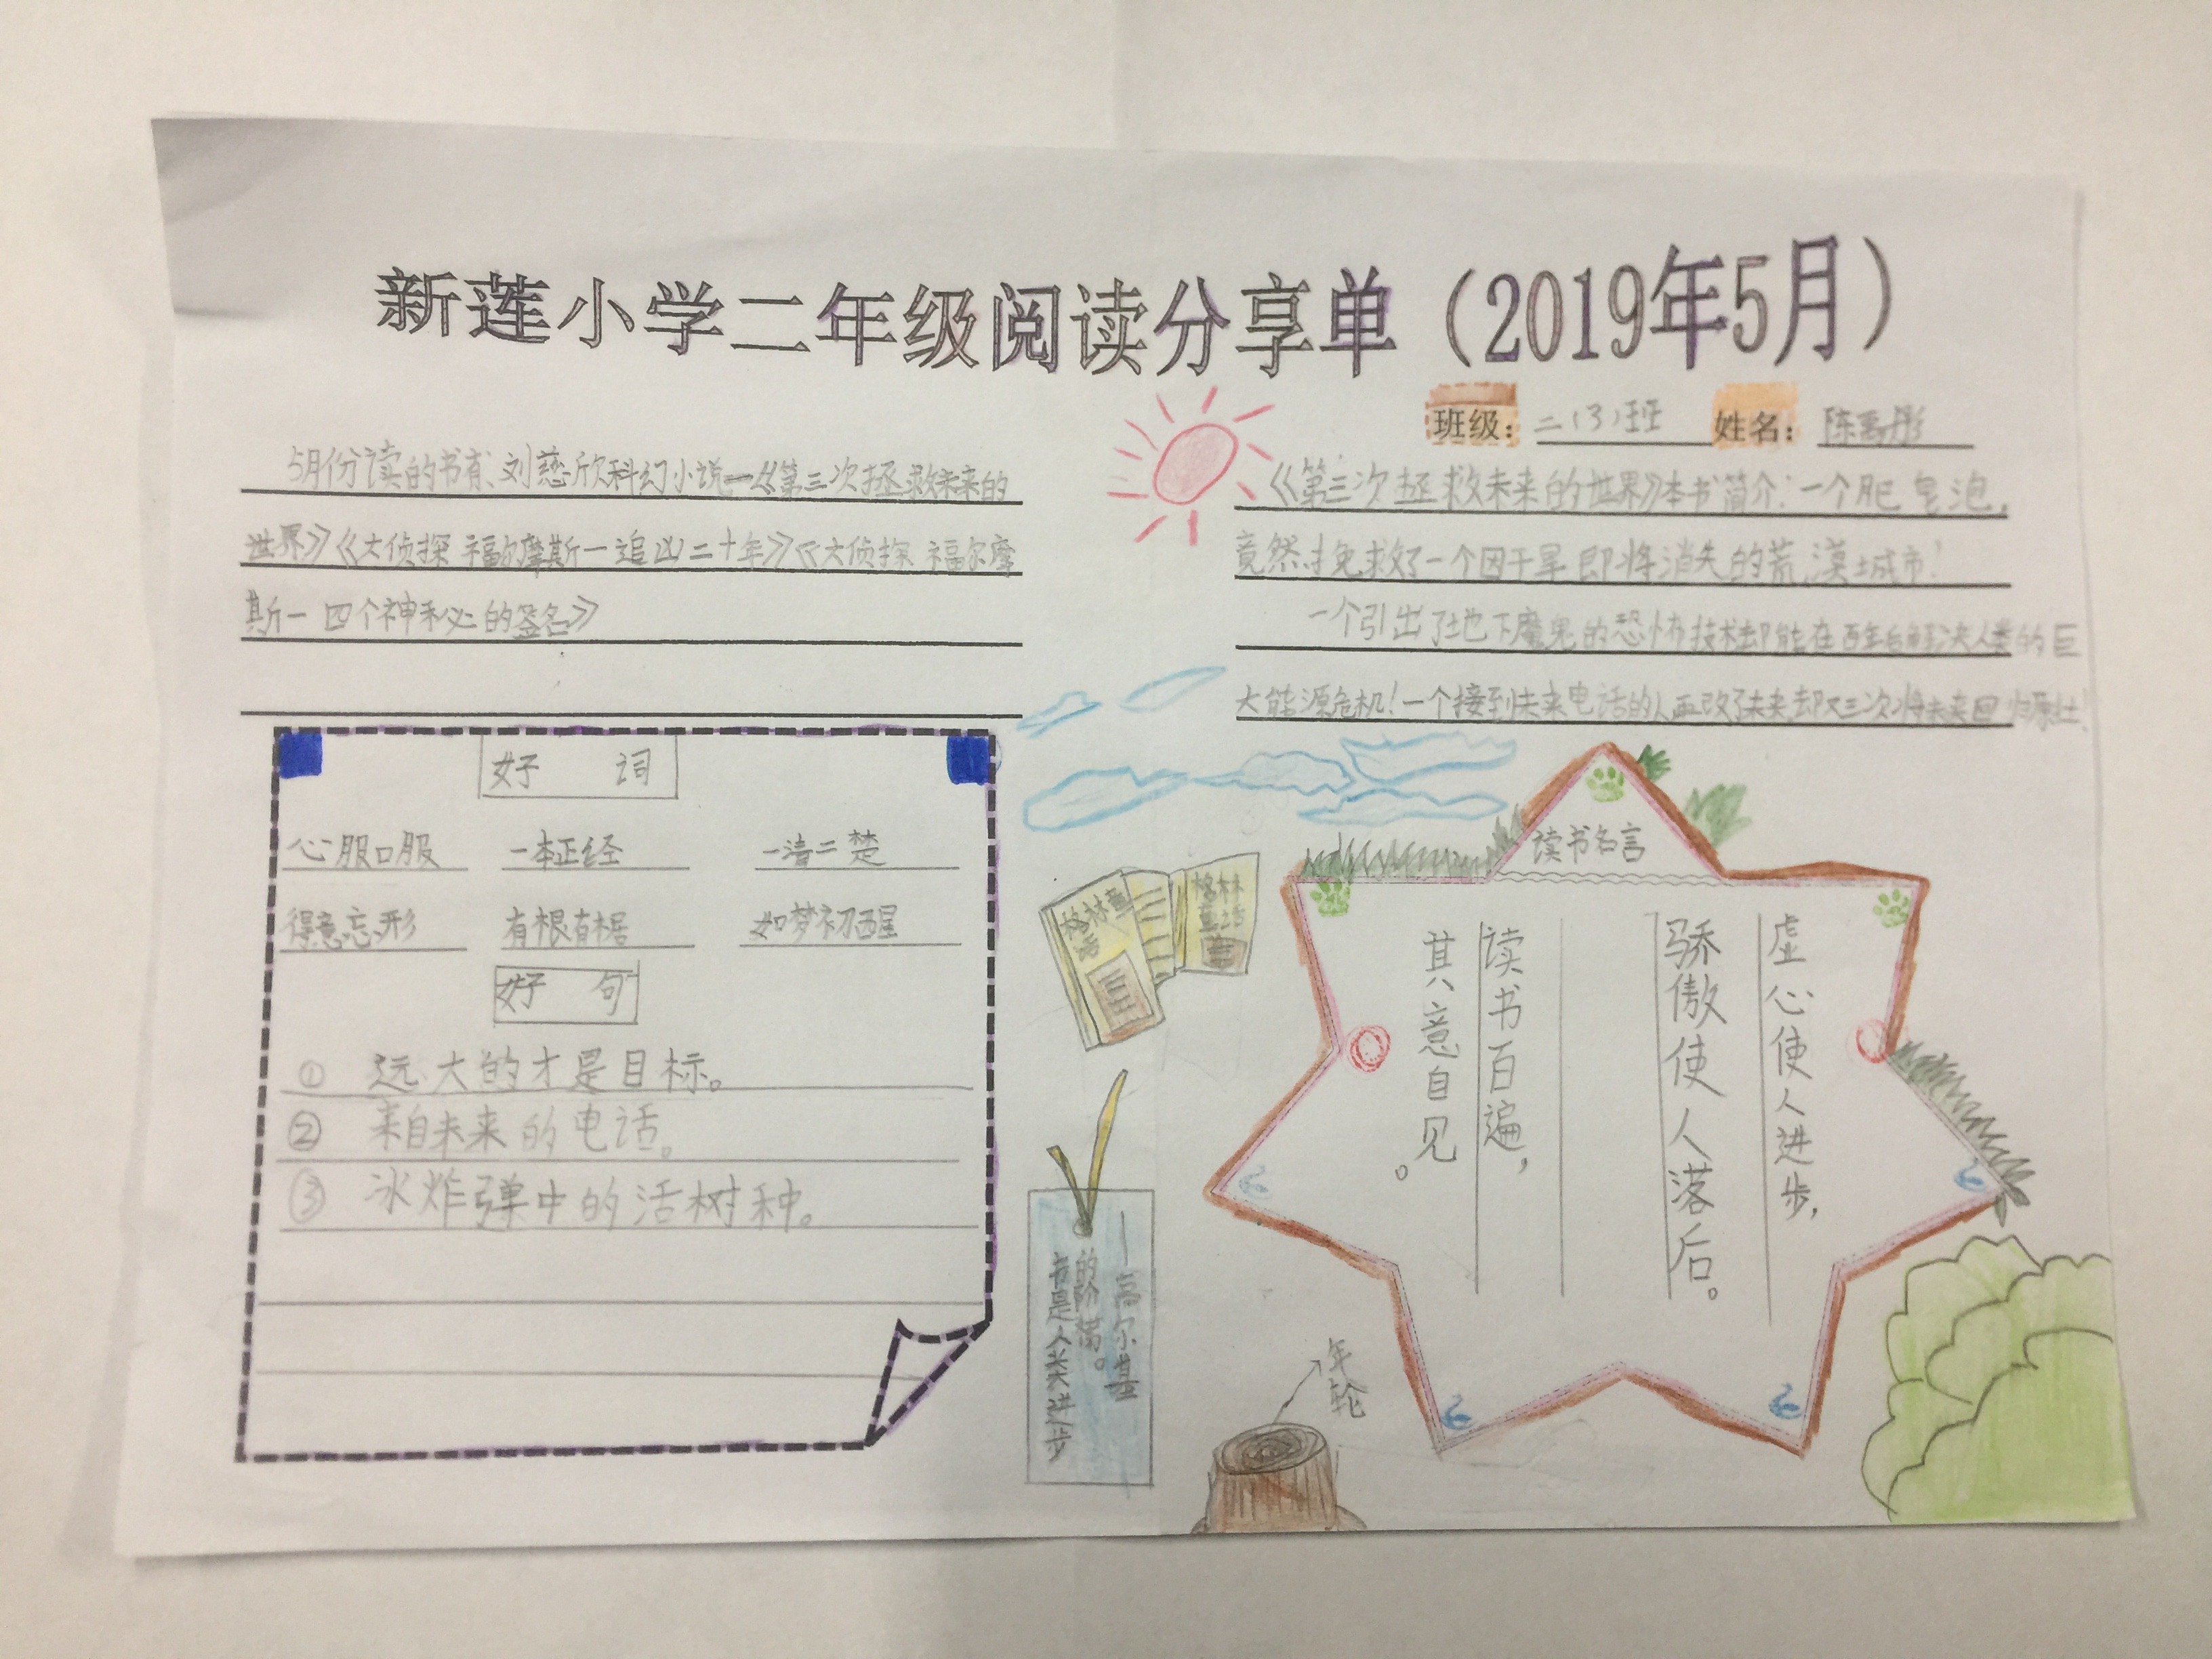 新莲小学二年级阅读分享单（2019年5月）
班级：二（3）班 姓名：陈禹彤
5月份读的书有、刘慈欣科幻小说—《第三次拯救未来的
世界》《大侦探福尔摩斯一追凶二十年》《大侦探福尔摩
斯一四个神秘的签名》
《第三次拯救未来的世界》本书简介：一个肥皂泡，
竟然挽救了一个因干旱即将消失的荒漠城市！
一个引出了地下魔鬼的恐怖技术却能在百年后解决人类的巨
大能源危机！一个接到未来电话的人 改了未来却又三次将未来回归原 ！
好 词
心服口服 一本正经 一清二楚
得意忘形 有根有据 如梦初醒
好 句
① 远大的才是目标。
② 来自未来的电话。
③ 冰炸弹中的活树种。
格林童话
格林童话
书是人类进步
的阶梯。
——高尔基
年轮
读书名言
虚心使人进步，
骄傲使人落后。
读书百遍，
其意自见。